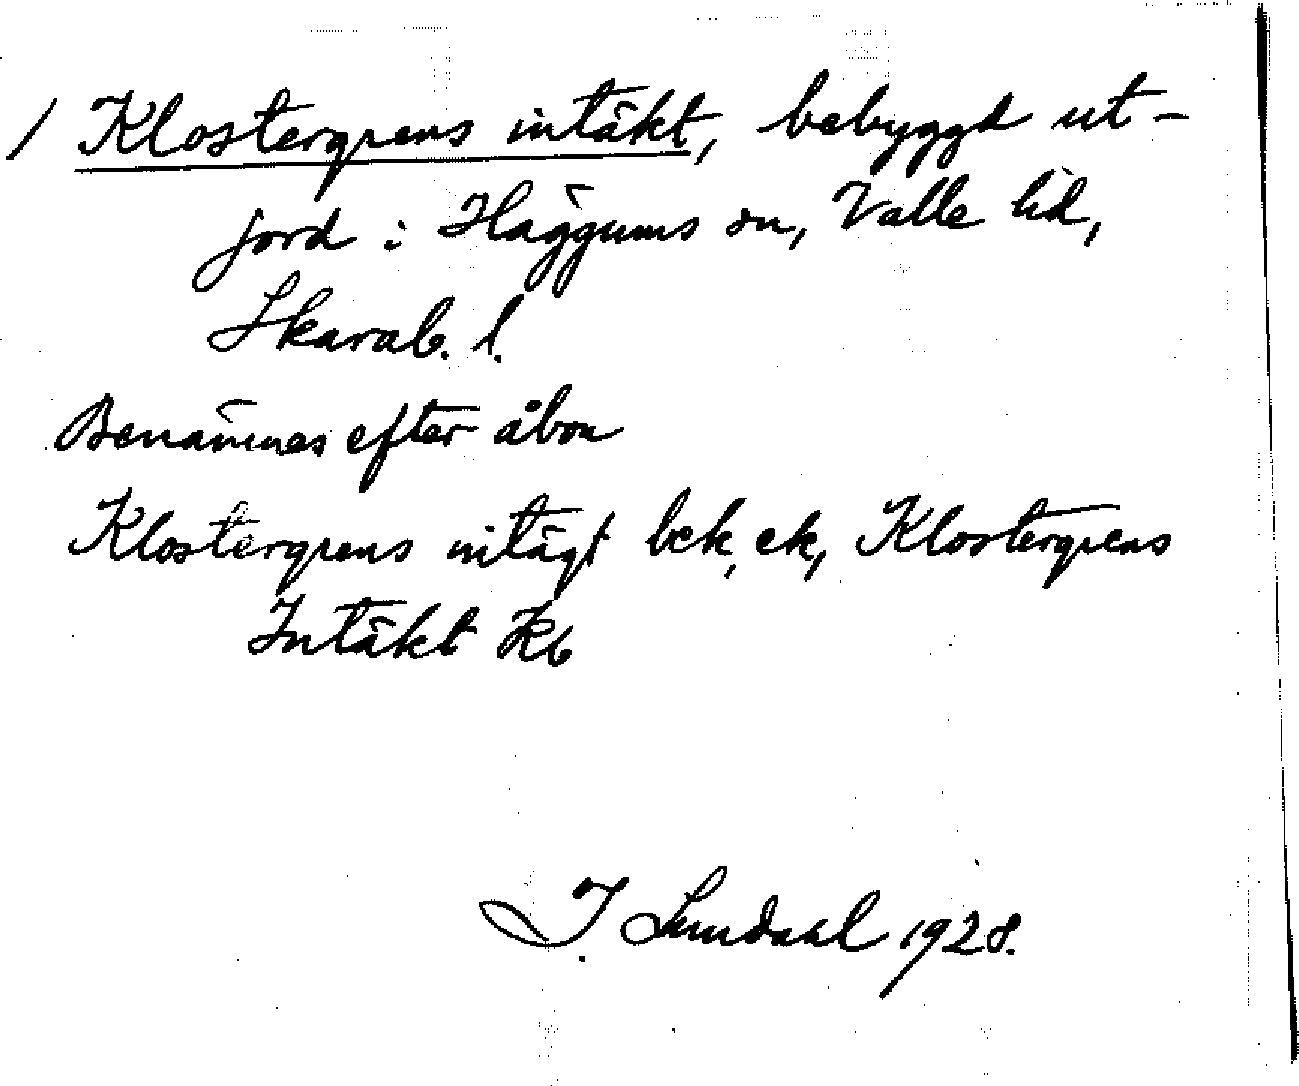 / Klostergrens intäkt, bebyggd ut-
jord i Häggums sn, Valle hd,
Skarab. l.
Benämnes efter åbon
Klostergrens intägt bek, ek, Klostergrens
Intäkt Kb
I. Lundahl 1928.